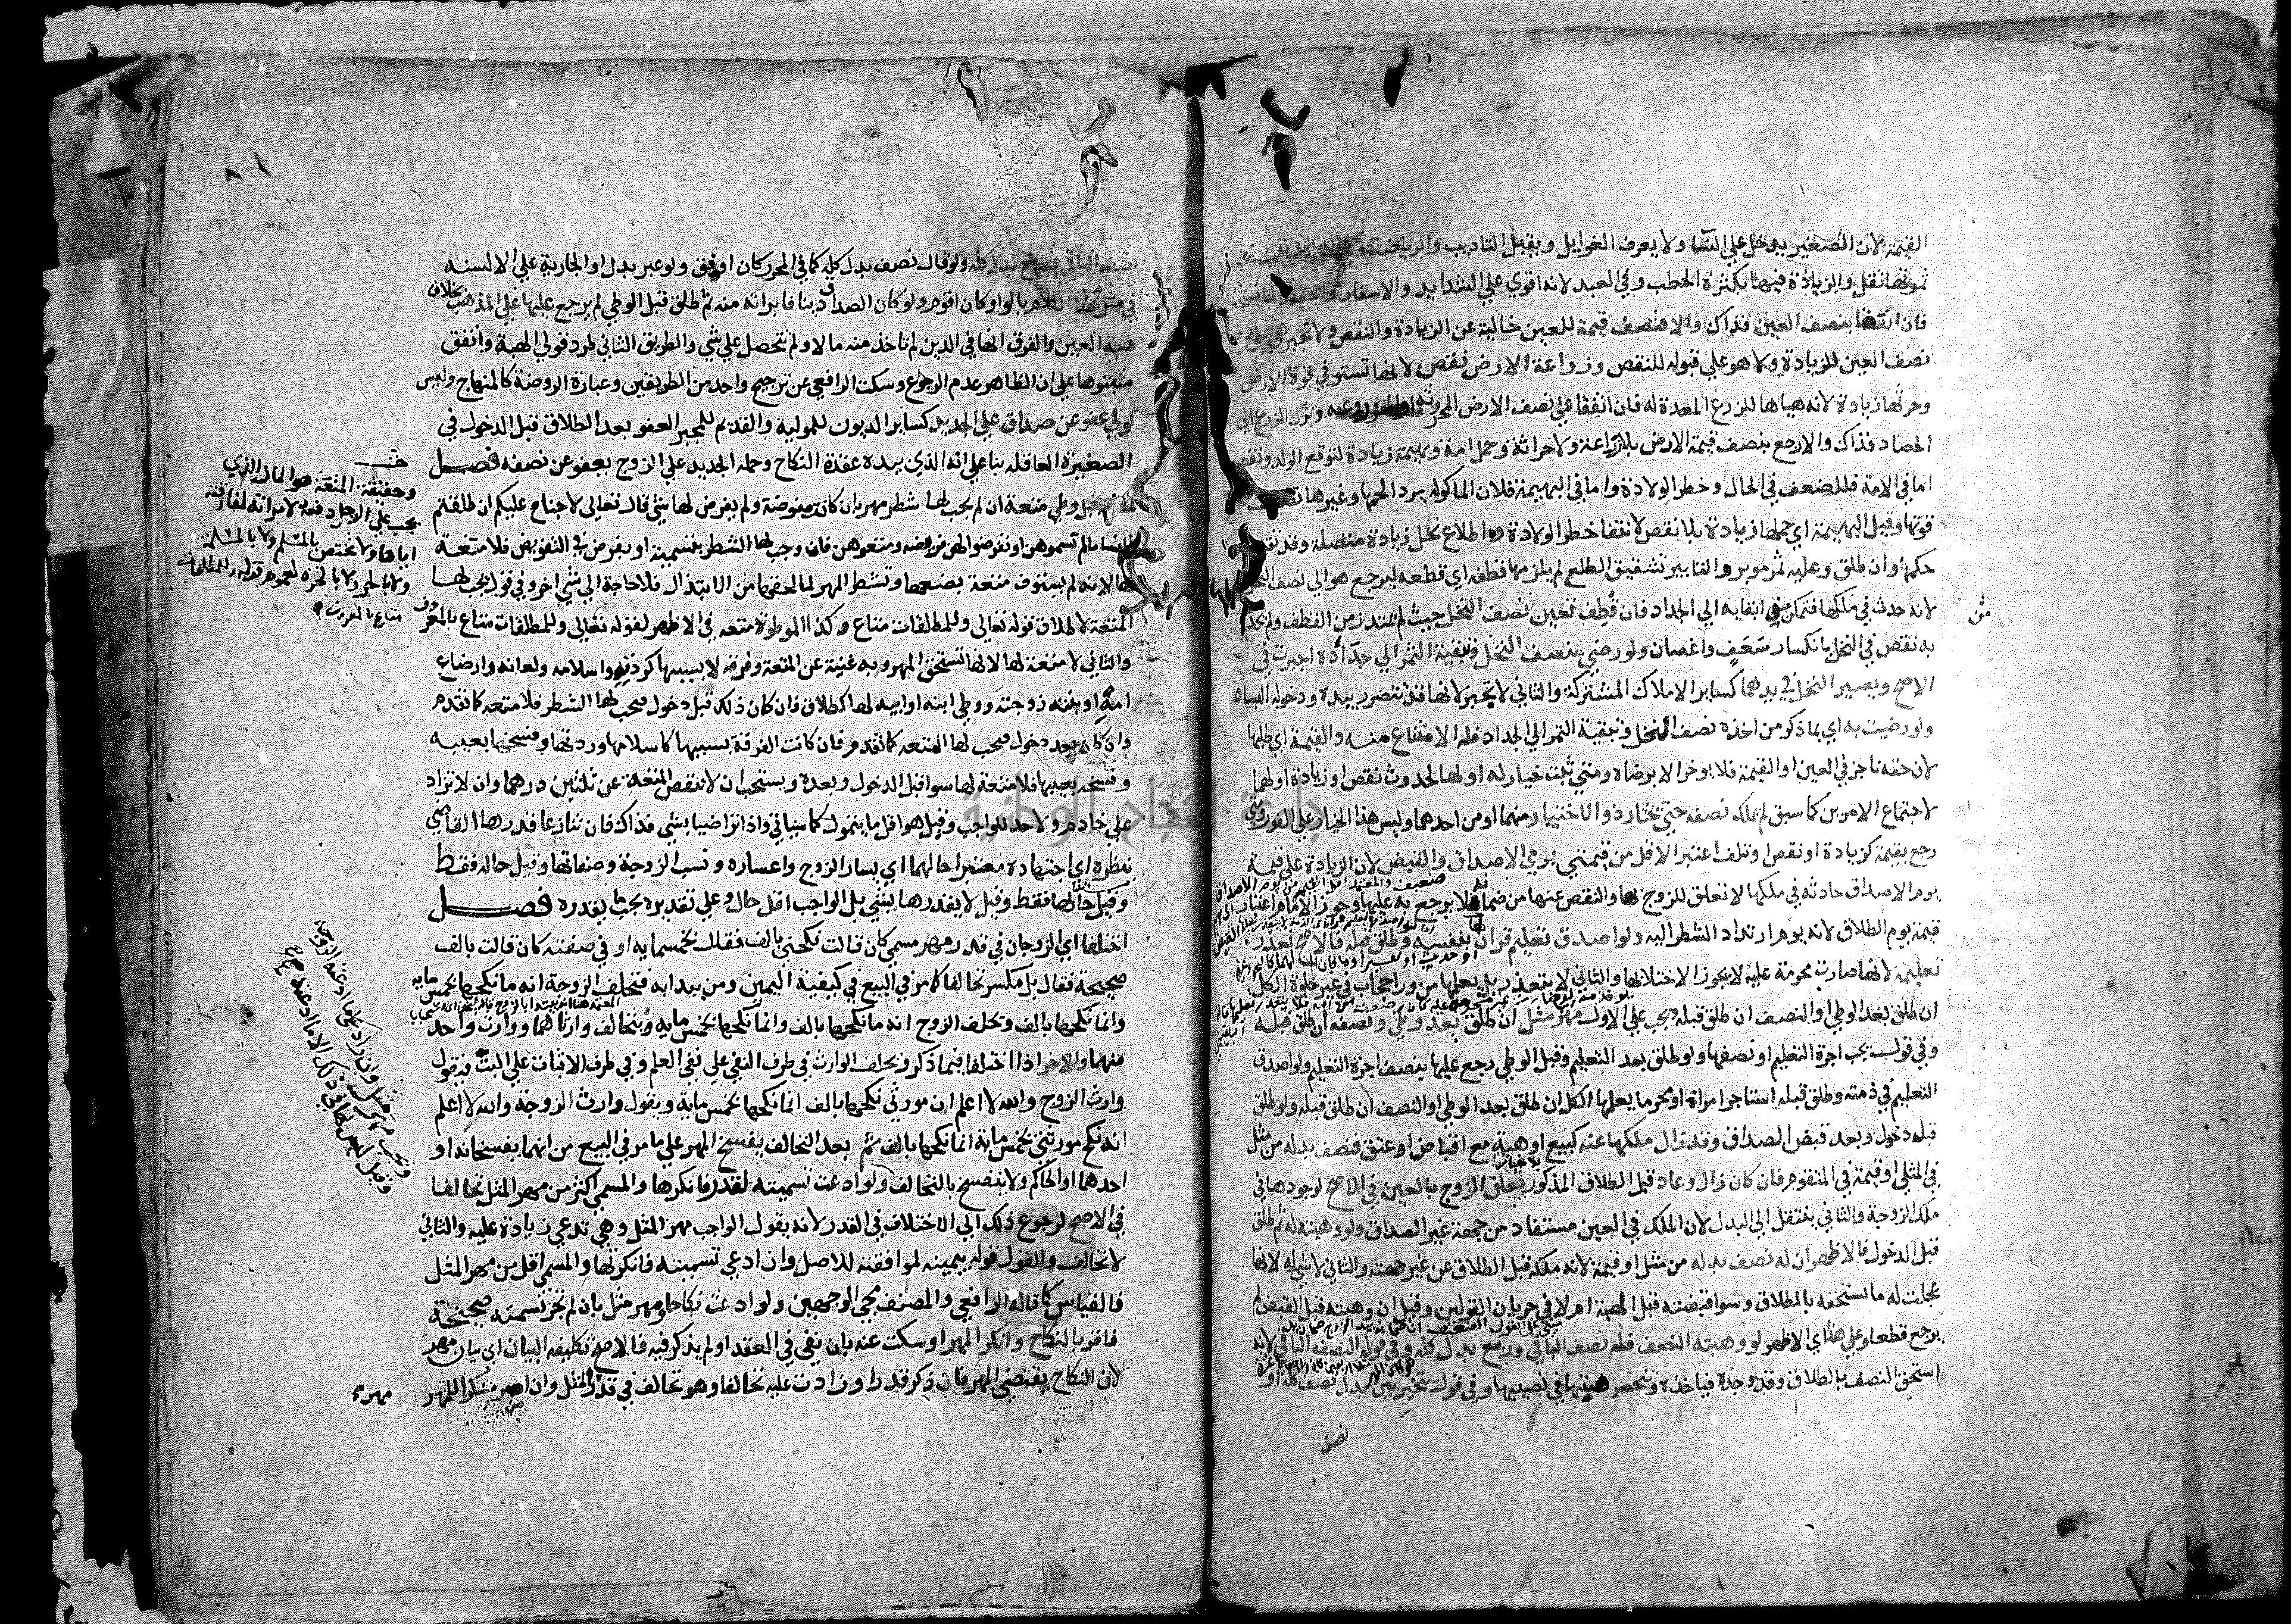 القيمة لان الصغير يدخل علي النسا ولا يعرف الغوايل ويقبل التاديب والرياضة
تقل والزيادة فيهما بكثرة الحطب وفي العبد لانه اقوي علي الشدايد والاسفار
فان اتفقا بنصف العين فذاك والا فنصف قيمة للعين خالية عن الزيادة والنقص ولا تجبر هي علي
نصف العين للزيادة ولا هو علي قبوله للنقص وزراعة الارض نقص لانها تستوفي قوة الارض
وحرثها زيادة لانه هياها للزرع المعدة له فان اتفقا علي نصف الارض المحروثة او المزروعة وترك الزرع الي
الحصاد فذاك والا رجع بنصف قيمة الارض بلا زراعة ولا حراثة وحمل امة وبهيمة زيادة لتوقع الولد ونقص
اما في الامة فللضعف في الحال وخطر الولادة واما في البهيمة فلان الماكولة يرد الحمها وغيرها
قوتها وقيل البهيمة اي حملها زيادة بلا نقص لانتفا خطر الولادة واطلاع نخل زيادة متصلة وقد تقدم
حكمها وان طلق وعليه ثمر موبر والتابير تشقيق الطلع لم يلزمها قطفه اي قطعه ليرجع هو الي نصف النخل
لانه حدث في ملكها فتمكن من ابقايه الي الجداد فان قطف تعين نصف النخل حيث لم يمتد زمن القطف ولم يحدث
به نقص في النخل بانكسار سعف واغصان ولو رضي بنصف النخل وتبقية الثمر الي جداده اجبرت في
الاصح ويصير النخل في يدهما كساير الاملاك المشتركة والثاني لا تجبر لانها قد تتضرر بيده ودخوله البستان
ولو رضيت به اي بما ذكر من اخذه نصف النخل وتبقية الثمر الي الجداد فله الامتناع منه والقيمة اي طلبها
لان حقه ناجز في العين او القيمة فلا يوخر الا برضاه ومتي ثبت خيار له او لها لحدوث نقص او زيادة او لهما
لاجتماع الامرين كما سبق لم يملك نصفه حتي يختار ذو الاختيار منهما او من احدهما وليس هذا الخيار علي الفور ومتي
رجع بقيمة كزيادة او نقص او تلف اعتبر الاقل من قيمتي يومي الاصداق والقبض لان الزيادة علي قيمة
يوم الاصداق حادثة في ملكها لا تعلق للزوج بها والنقص عنها من ضمانه فلا يرجع به عليها وجوز الامام اعتبار
قيمة يوم الطلاق لانه يوم ارتداد الشطر اليه ولو اصدق تعليم قران بنفسه وطلق قبله فالاصح تعذر
تعليمه لانها صارت محرمة عليه لا يجوز الاختلا بها والثاني لا يتعذر بل يعلمها من ورا حجاب في غير خلوة الكل
ان طلق بعد الوطي او النصف ان طلق قبله ويجب علي الاول مهر مثل ان طلق بعد وطي ونصفه ان طلق قبله
وفي قول يجب اجرة التعليم او نصفها ولو طلق بعد التعليم وقبل الوطي رجع عليها بنصف اجرة التعليم ولو اصدق
التعليم في ذمته وطلق قبله استاجر امراة او محرما يعلمها الكل ان طلق بعد الوطي او النصف ان طلق قبله ولو طلق
قبل دخول وبعد قبض الصداق وقد زال ملكها عنه كبيع او هبة مع اقباض او عتق فنصف بدله من مثل
في المثلي او قيمة في المتقوم فان كان زال وعاد قبل الطلاق المذكور تعلق الزوج بالعين في الاصح لوجودها في
ملك الزوجة والثاني ينتقل الي البدل لان الملك في العين مستفاد من جهة غير الصداق ولو وهبته له ثم طلق
قبل الدخول فالاظهر ان له نصف بدله من مثل او قيمة لانه ملكه قبل الطلاق عن غير جهته والثاني لا شي له لانها
عجلت له ما يستحقه بالطلاق وسوا قبضته قبل الهبة ام لا في جريان القولين وقيل ان وهبته قبل القبض لم
يرجع قطعا وعلي هذا اي الاظهر لو وهبته النصف فله نصف الباقي وربع بدل كله وفي قول النصف الباقي لانه
استحق النصف بالطلاق وقد وجده فياخذه وتنحصر هبتها في نصيبها وفي قول يتخير بين بدل نصف كله او
نصف
ولو قال نصف بدل كله كما في المحرر كان اوفق ولو عبر بدل او الجارية علي الالسنة
في مثل هذا الكلام بالواو كان اقوم ولو كان الصداق دينا فابراته منه ثم طلق قبل الوطي لم يرجع عليها علي المذهب بخلاف
هبة العين والفرق انها في الدين لم تاخذ منه مالا ولم تتحصل علي شي والطريق الثاني طرد قولي الهبة واتفق
مثبتوها علي ان الظاهر عدم الرجوع وسكت الرافعي عن ترجيح واحد من الطريقين وعبارة الروضة كالمنهاج وليس
لولي عفو عن صداق علي الجديد كساير الديون للمولية والقديم للمجبر العفو بعد الطلاق قبل الدخول في
الصغيرة العاقلة بنا علي انه الذي بيده عقدة النكاح وحمله الجديد علي الزوج يعفو عن نصفه فصل
قبل وطي متعة ان لم يجب لها شطر مهر بان كانت مفوضة ولم يفرض لها شي قال تعالي لا جناح عليكم ان طلقتم
النسا ما لم تمسوهن او تفرضوا لهن فريضة ومتعوهن فان وجب لها الشطر بتسمية او بفرض في التفويض فلا متعة
لها لانه لم يستوف منفعة بضعها وتشطر المهر لما لحقها من الابتذال فلا حاجة الي شي اخر وفي قول يجب لها
المتعة لاطلاق قوله تعالي وللمطلقات متاع وكذا الموطوة متعة في الاظهر لقوله تعالي وللمطلقات متاع بالمعروف
والثاني لا متعة لها لانها تستحق المهر وبه غنية عن المتعة وفرقة لا بسببها كردته واسلامه ولعانه وارضاع
امه او بنته زوجته ووطي ابنه او ابيه لها كطلاق فان كان ذلك قبل دخول فيجب لها الشطر فلا متعة كما تقدم
وان كان بعد دخول فيجب لها المتعة كما تقدم فان كانت الفرقة بسببها كاسلامها وردتها وفسخها بعيبه
وفسخه بعيبها فلا متعة لها سوا قبل الدخول وبعده ويستحب ان لا تنقص المتعة عن ثلثين درهما وان لا تزاد
علي خادم ولا حد للواجب وقيل هو اقل ما يتمول كما سياتي واذا تراضيا بشي فذاك فان تنازعا قدرها القاضي
بنظره اي اجتهاده معتبرا حالهما اي يسار الزوج واعساره ونسب الزوجة وصفاتها وقيل حاله فقط
وقيل حالها فقط وقيل لا يقدرها بشي بل الواجب اقل مال وعلي تقديره يجب ما يقدره فصل
اختلفا اي الزوجان في قدر مهر مسمي كان قالت نكحتني بالف فقال بخمسمايه او في صفته كان قالت بالف
صحيحة فقال بل مكسر تحالفا كما مر في البيع في كيفية اليمين ومن يبدا به فتحلف الزوجة انه ما نكحها بخمس مايه
وانما نكحها بالف ويحلف الزوج انه ما نكحها بالف وانما نكحها بخمس مايه ويتحالف وارثاهما ووارث واحد
منهما والاخر اذا اختلفا فيما ذكر ويحلف الوارث في طرف النفي علي نفي العلم وفي طرف الاثبات علي البت فيقول
وارث الزوج والله لا اعلم ان مورثي نكحها بالف انما نكحها بخمس ماية ويقول وارث الزوجة والله لا اعلم
انه نكح مورثتي بخمس ماية انما نكحها بالف ثم بعد التحالف يفسخ المهر علي ما مر في البيع من انهما يفسخانه او
احدهما او الحاكم ولا ينفسخ بالتحالف ولو ادعت تسمية لقدر فانكرها والمسمي اكثر من مهر المثل تحالفا
في الاصح لرجوع ذلك الي الاختلاف في القدر لانه يقول الواجب مهر المثل وهي تدعي زيادة عليه والثاني
لا تحالف والقول قوله بيمينه لموافقته للاصل وان ادعي تسمية فانكرتها والمسمي اقل من مهر المثل
فالقياس كما قاله الرافعي والمصنف مجي الوجهين ولو ادعت نكاحا ومهر مثل بان لم تجز تسمية صحيحة
فاقر بالنكاح وانكر المهر او سكت عنه بان نفي في العقد او لم يذكر فيه فالاصح تكليفه البيان اي بيان مهر
لان النكاح يقتضي المهر فان ذكر قدرا وزادت عليه تحالفا وهو تحالف في قدر المثل وان اصر منكرا للمهر
وحقيقة المتعة هو المال الذي
يجب علي الرجل دفعه لامراته لمفارقته
اياها ولا تختص بالمسلم ولا بالمسلمة